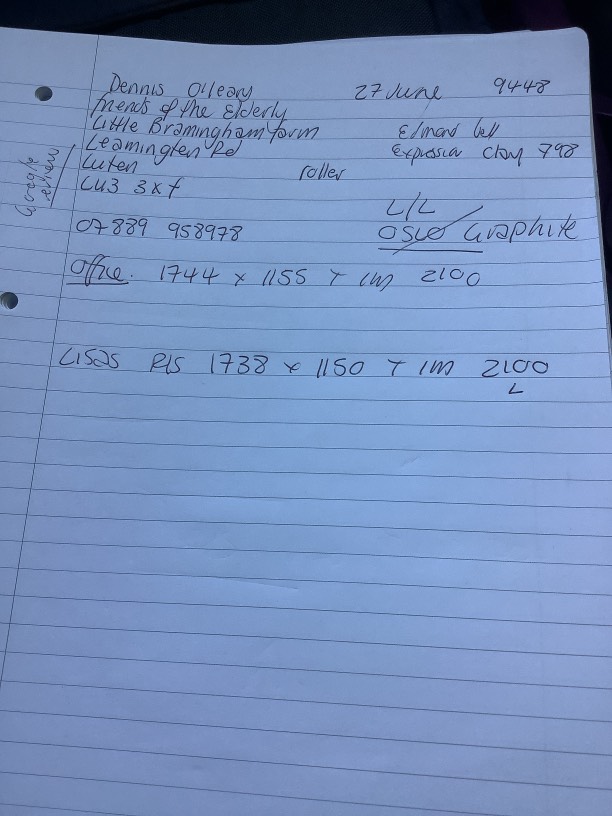 Dennis O'leary 27 June 9448
friends of the Elderly
Little Bramingham farm Elmond bell
Leamington Rd Expressia clay 798
Luten roller
LU3 3xf L/L
07889 958978 OSLO Graphite
Office. 1744 x 1155 T 1M 2100
LISAS R/S 1738 x 1150 T 1M 2100
L
Google
review